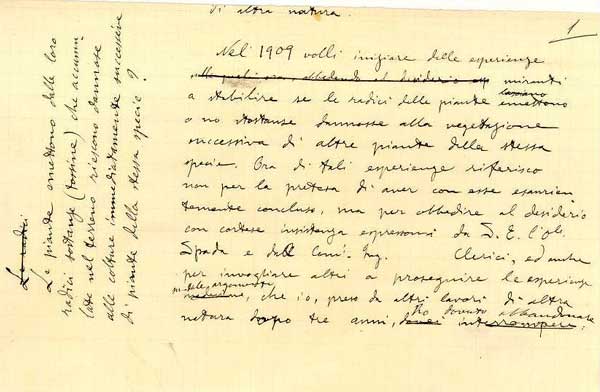 di altra natura.
1
Nel 1909 volli iniziare delle esperienze
miranti
a stabilire se le radici delle piante emettono lasciano
o no sostanze dannose alla vegetazione
successiva di altre piante della stessa
specie. Ora di tali esperienze riferisco
non per la pretesa di aver con esse esaurien
temente concluso, ma per obbedire al desiderio
con cortese insistenza espressomi da S. E. l'On.
Spada e dal Com. Ing. Clerici, ed anche
per invogliare altri a proseguire le esperienze
in tale argomento, che io, preso da altri lavori di altra
natura dopo tre anni, ho dovuto abbandonare
dovei interrompere.
Le radici
Le piante emettono dalle loro
radici sostanze (tossine) che accumu
late nel terreno riescono dannose
alle colture immediatamente successive
di piante della stessa specie?